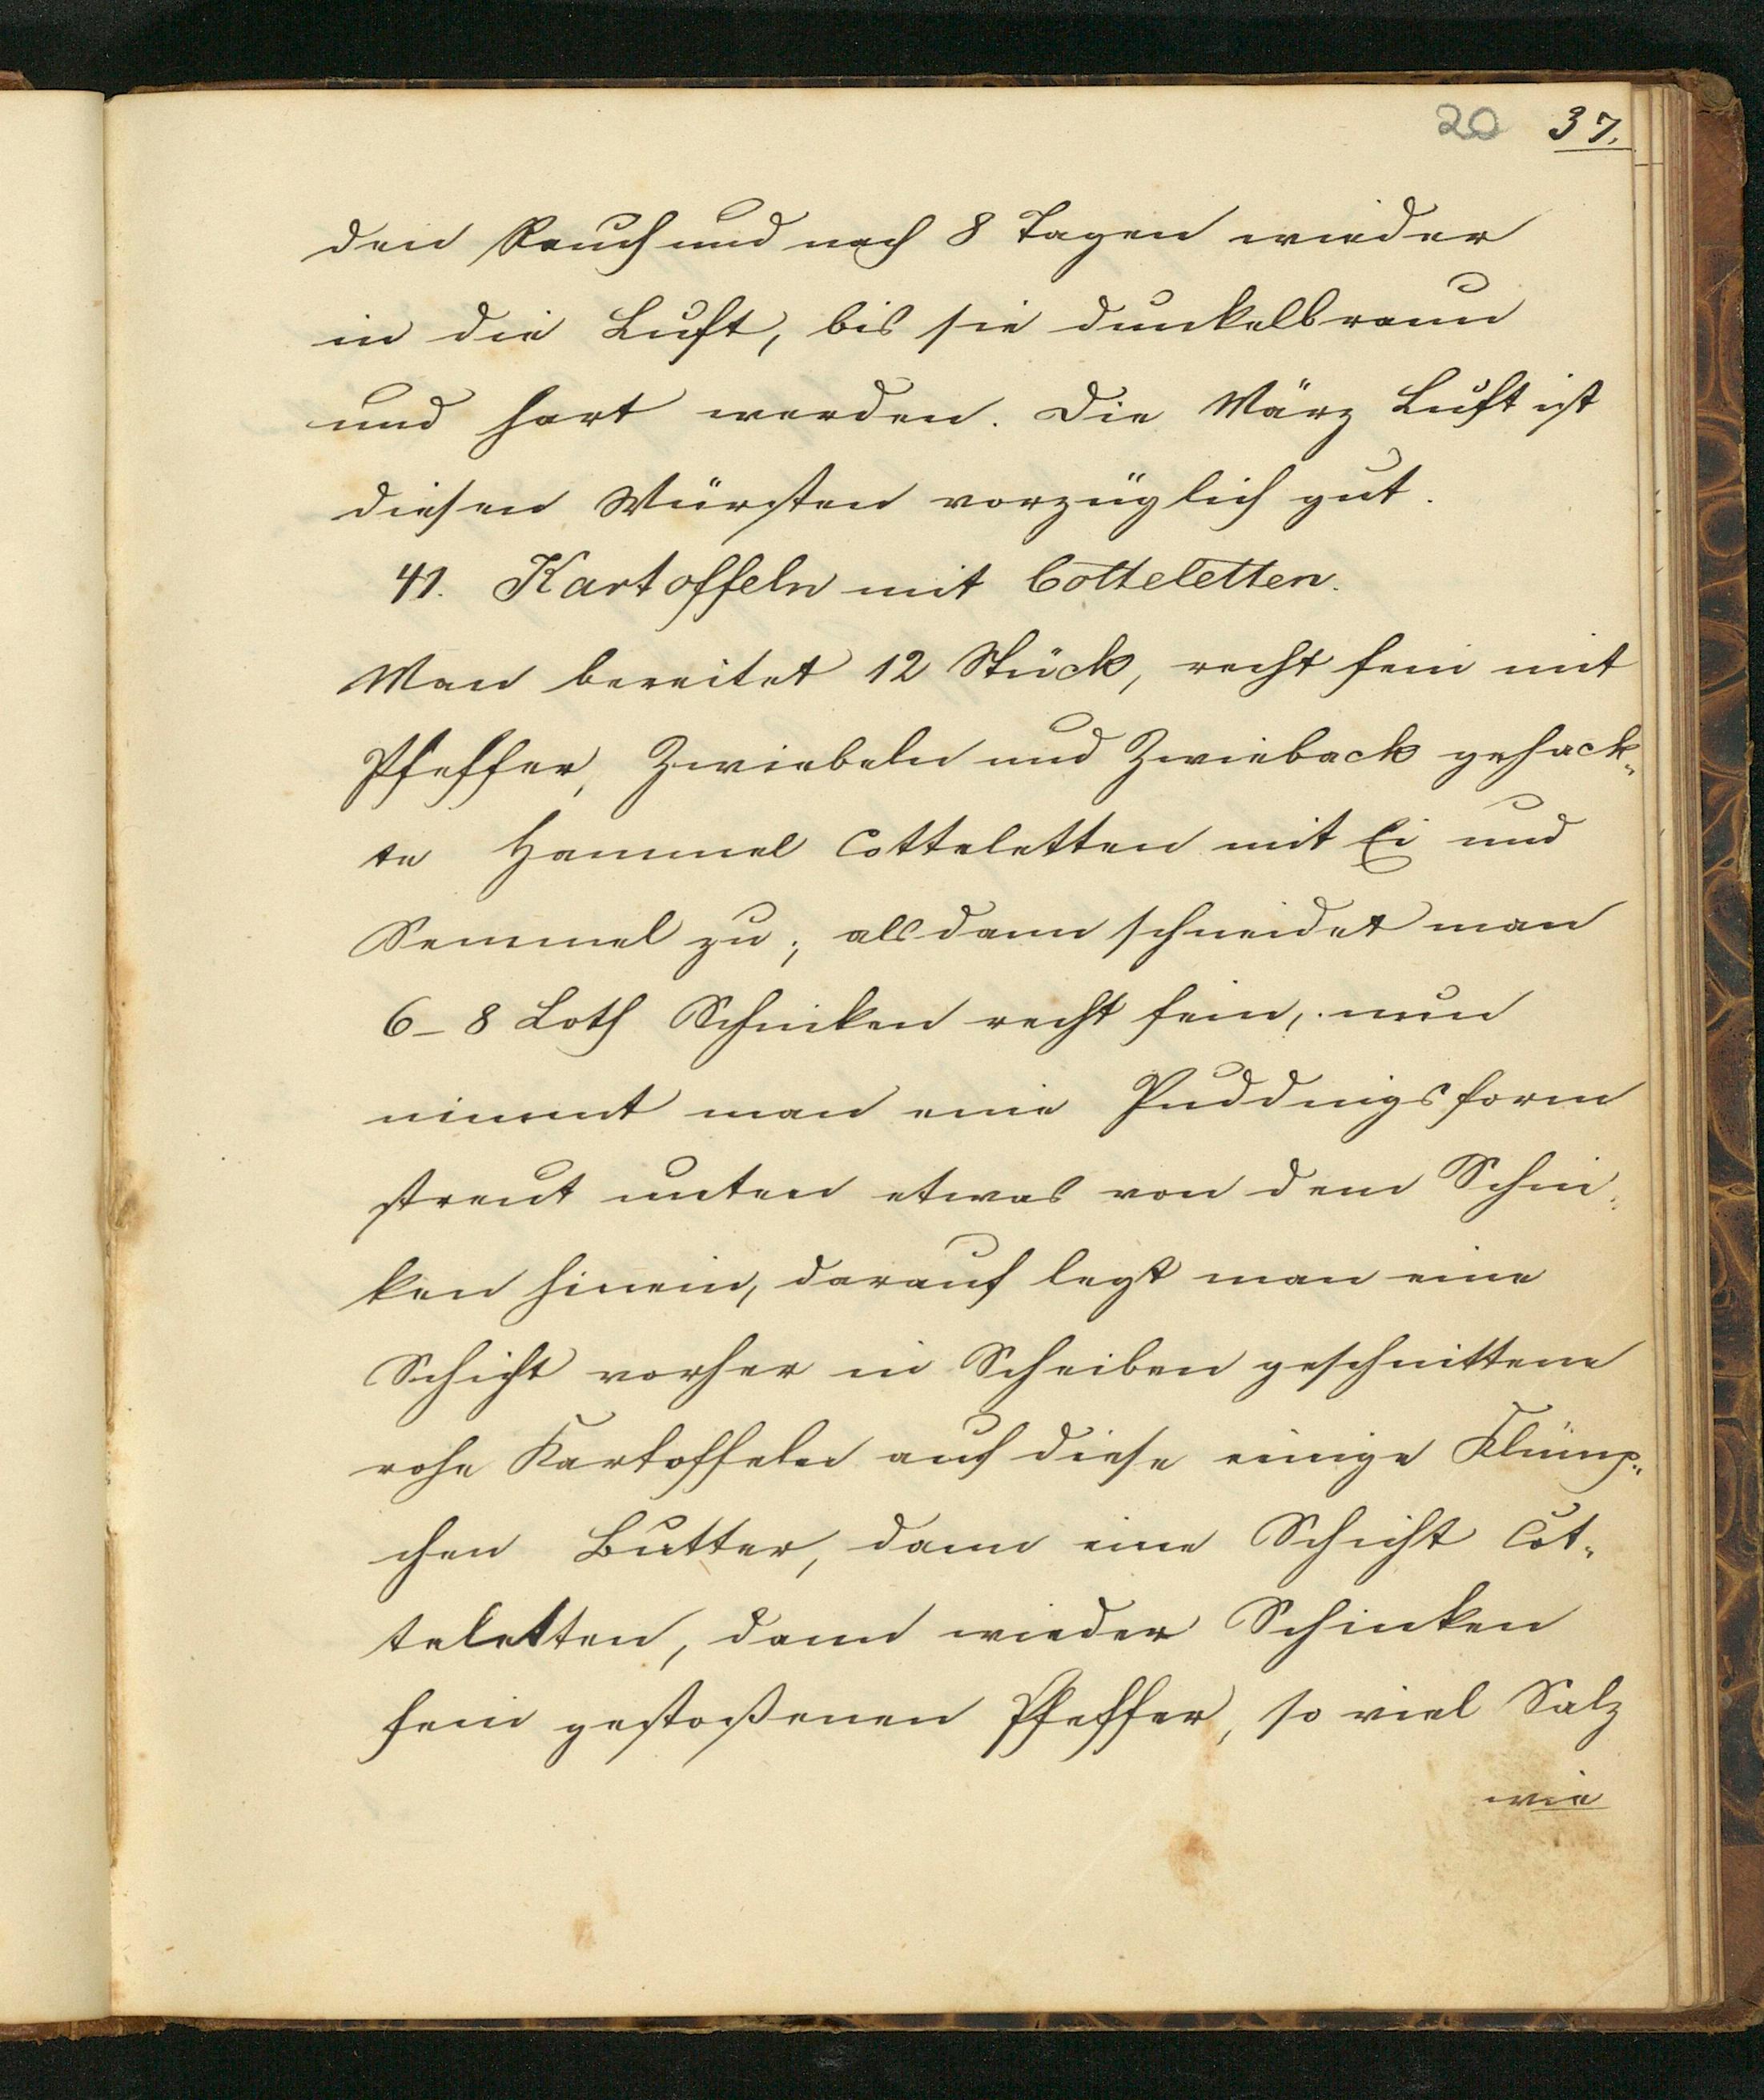 20 37.
den Rauch und nach 8 Tagen wieder
in die Luft, bis sie dunkelbraun
und hart werden. Die März Luft ist
diesen Würsten vorzüglich gut.
41. Kartoffeln mit Cotteletten.
Man bereitet 12 Stück, recht fein mit
Pfeffer, Zwiebeln und Zwieback gehack„
te Hammel Cotteletten mit Ei und
Semmel zu; alsdann schneidet man
6_8 Loth Schinken recht fein, nun
nimmt man eine Puddingsform
streut unten etwas von dem Schin„
ken hinein, darauf legt man eine
Schicht vorher in Scheiben geschnittene
rohe Kartoffeln auf diese einige Klümp„
chen Butter, dann eine Schicht Cot„
teletten, dann wieder Schinken
fein gestoßenen Pfeffer, so viel Salz
wie